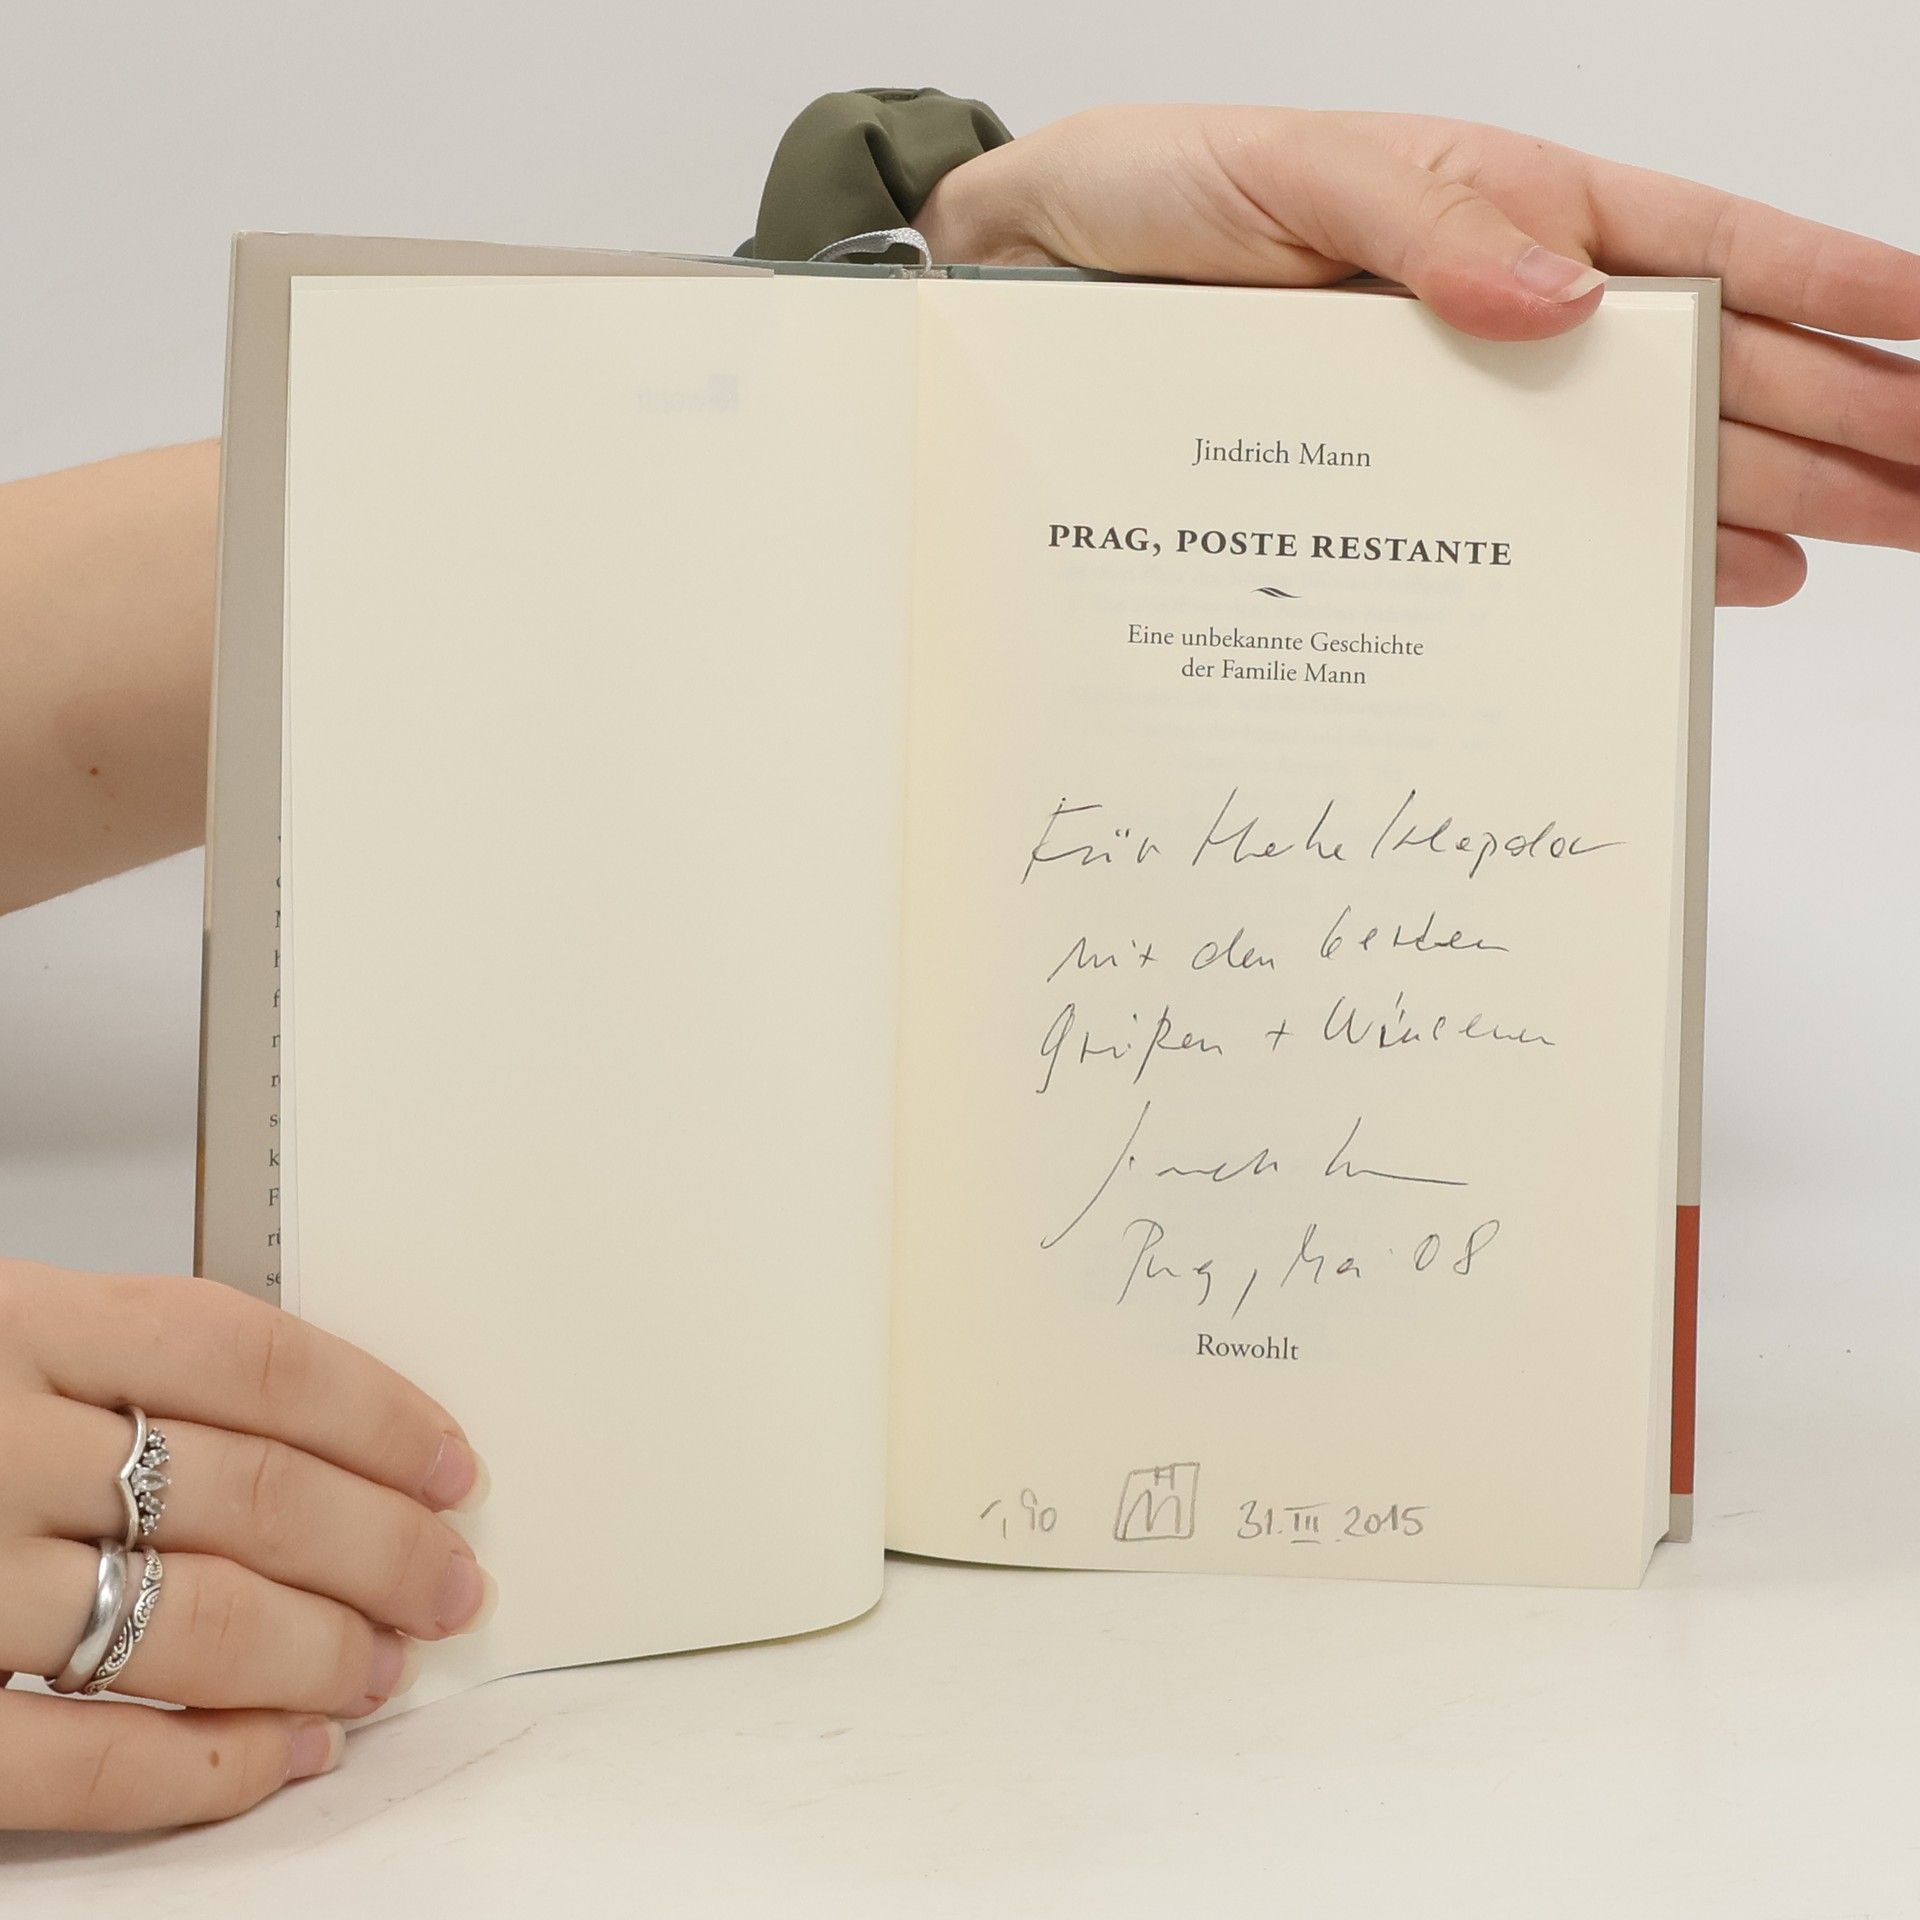 Jindrich Mann
PRAG, POSTE RESTANTE
Eine unbekannte Geschichte
der Familie Mann
Für
mit den besten
Grüßen + Wünschen
Prag, Mai 08
Rowohlt
1,90 31.III.2015